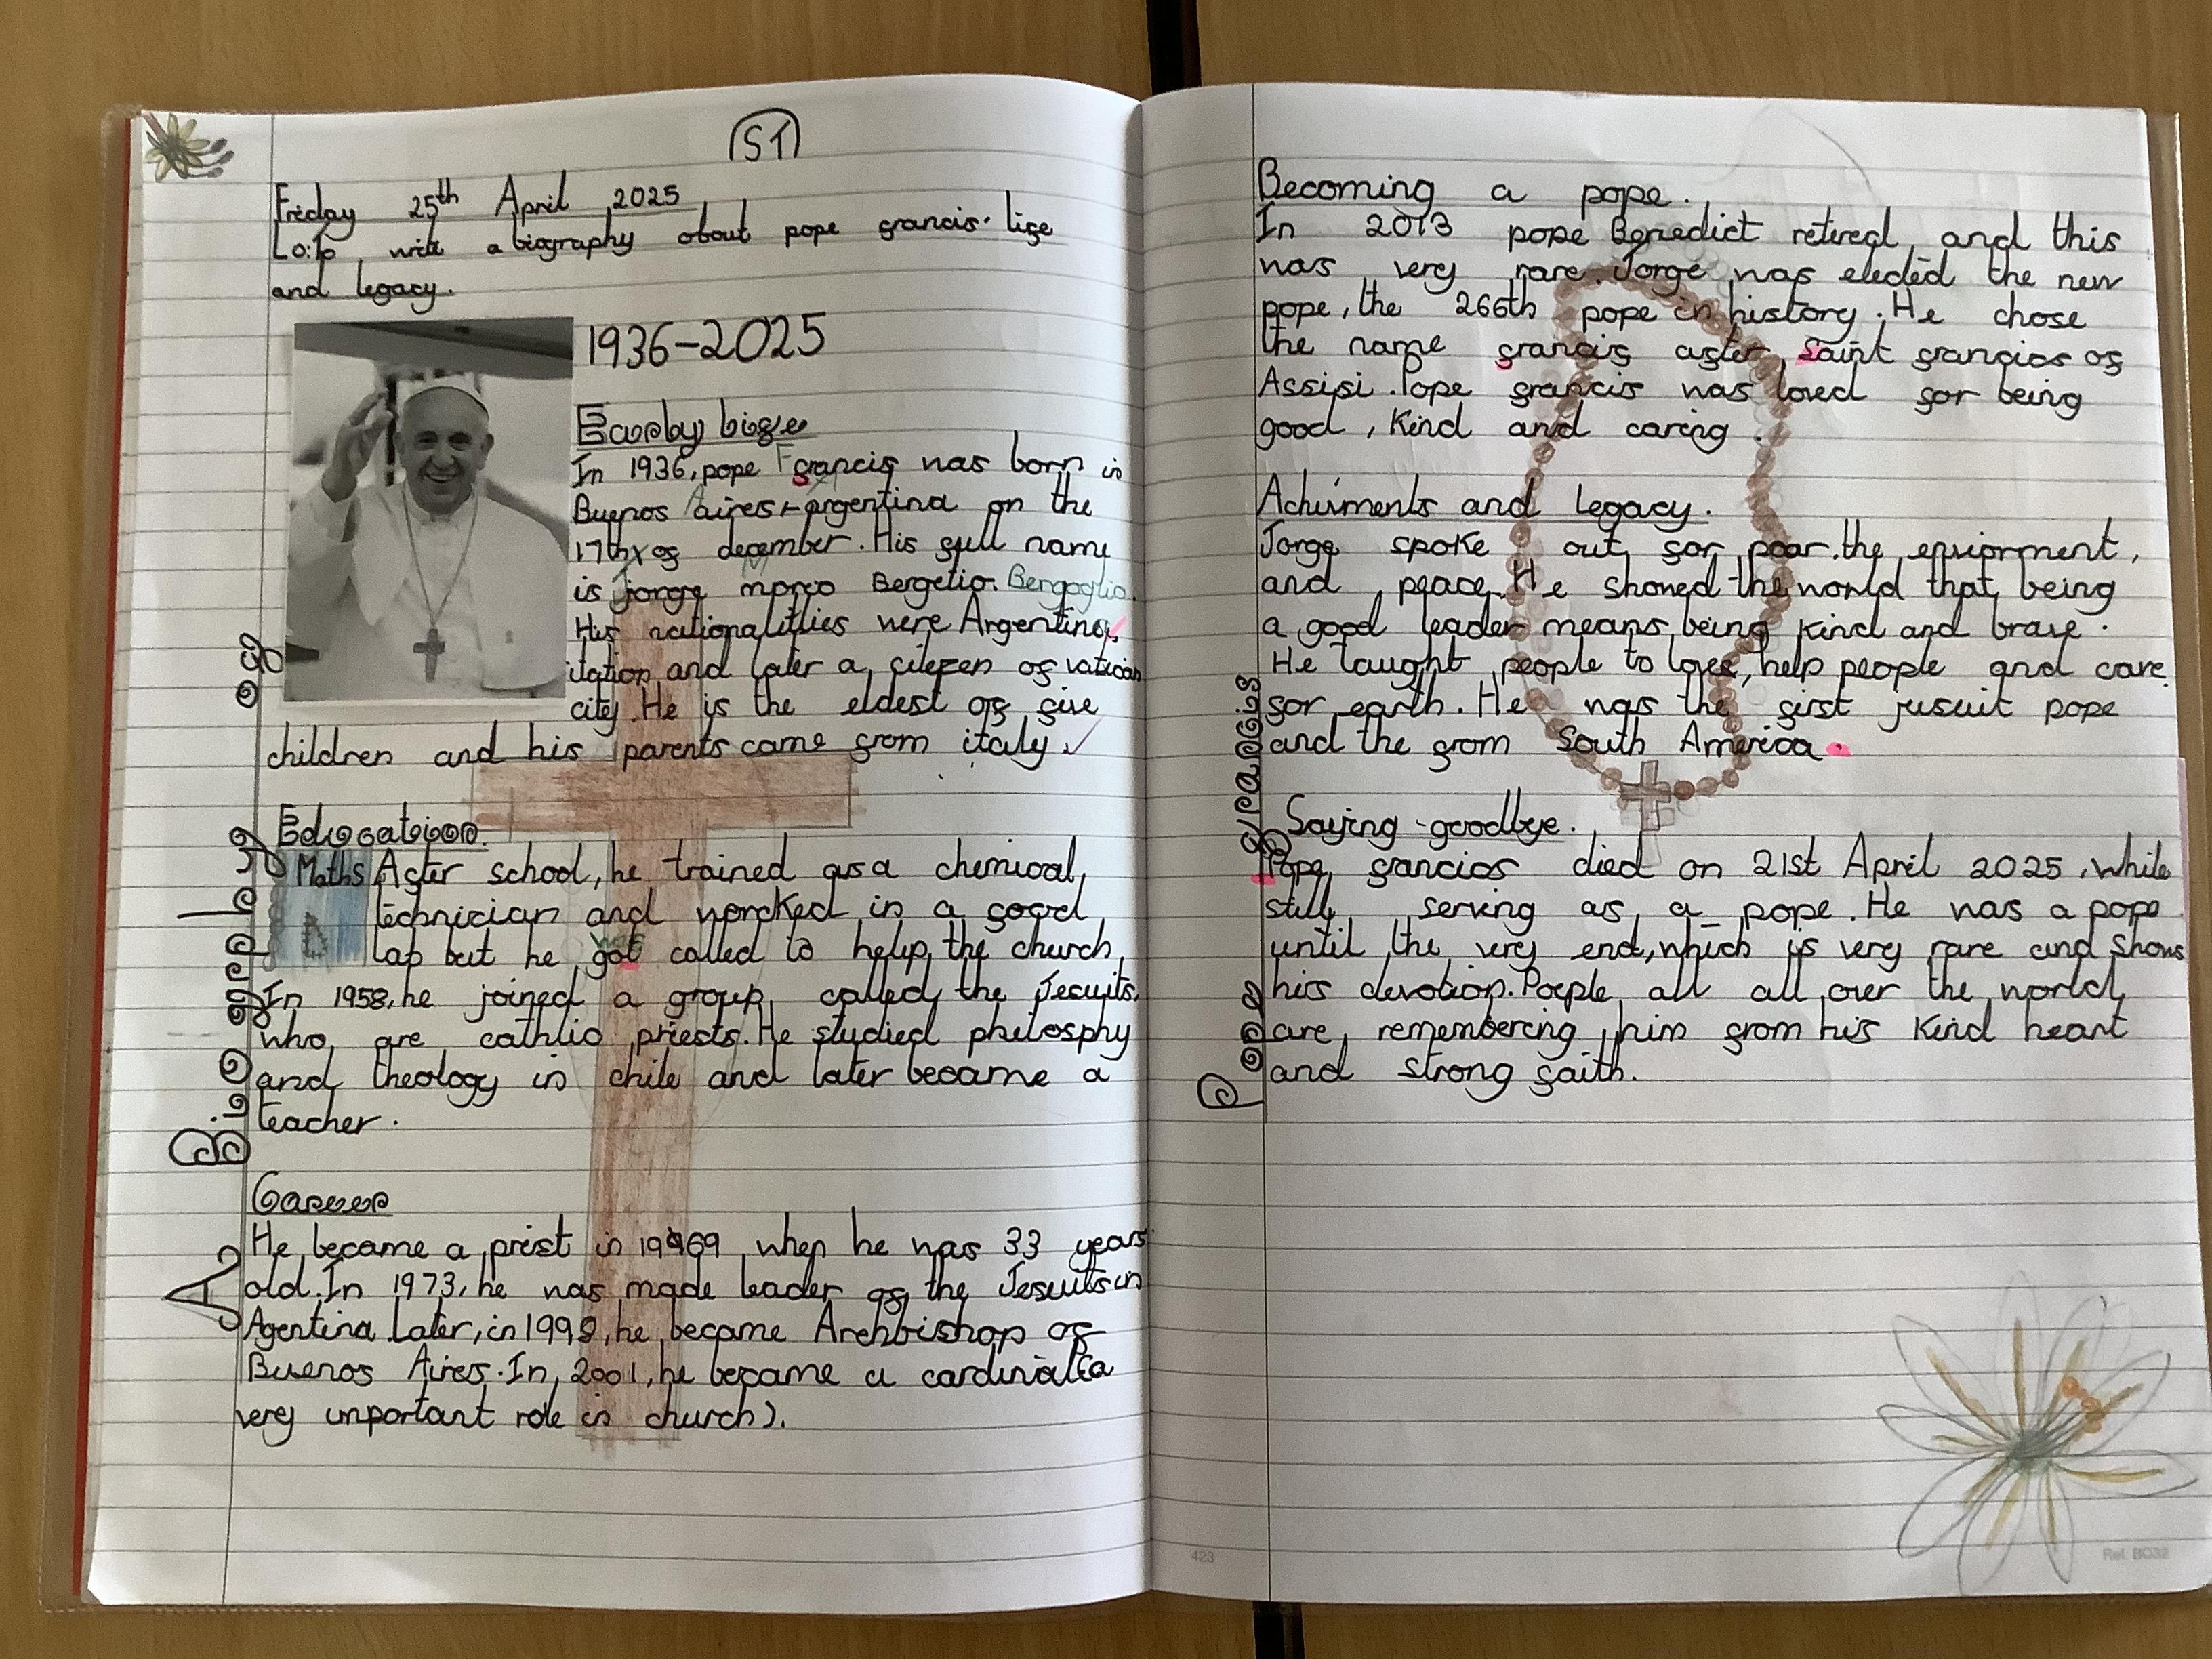 ST
Friday 25th April 2025
Lo: To write a biography about pope francis. life
and legacy.
1936-2025
Early life
In 1936, pope Francis was born in
Buenos Aires, argentina on the
17th of december. His full name
is Jorge Marco Bergelio. Bergoglio.
His nationalities were Argentina,
itation and later a citezen of vatican
city. He is the eldest of five
children and his parents came from italy.
Education
Maths After school, he trained as a chemical
technician and worcked in a food
lab but he got was called to help the church
In 1958, he joined a group called the Jesuits.
who are cathlic priests. He studied philosphy
and theology in chile and later became a
teacher.
Career
He became a preist in 1969 when he was 33 years
old. In 1973, he was made leader of the Jesuits in
Agentina Later, in 1998, he became Archbishop of
Buenos Aires. In 2001, he became a cardinal (a
very important role in church).
A Biography of
Becoming a pope.
In 2013 pope Benedict retired, and this
was very rare. Jorge was elected the new
pope, the 266th pope in history. He chose
the name francis after Saint francios of
Assisi. Pope francis was loved for being
good, kind and caring.
Achivments and legacy.
Jorge spoke out for poar. the enviorment,
and peace. He showed the world that being
a good leader means being kind and brave.
He taught people to love, help people and care
for earth. He was the first jusuit pope
and the from South America.
Saying goodbye.
Pope francios died on 21st April 2025, while
still serving as a pope. He was a pope
until the very end, which is very rare and shows
his devotion. Poeple all all over the world
are remembering him from his kind heart
and strong faith.
Pope francis
423
Ref: BO32